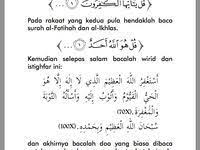 قُلْ يَٰٓأَيُّهَا ٱلْكَٰفِرُونَ ۝١...
Pada rakaat yang kedua pula hendaklah baca
surah al-Fatihah dan al-Ikhlas.
قُلْ هُوَ ٱللَّهُ أَحَدٌ ۝١...
Kemudian selepas salam bacalah wirid dan
istighfar ini:
أَسْتَغْفِرُ اللهَ الْعَظِيْمَ الَّذِي لَا إِلٰهَ إِلَّا هُوَ
الْحَيُّ الْقَيُّوْمُ وَأَتُوْبُ إِلَيْهِ وَأَسْأَلُهُ التَّوْبَةَ
وَالْمَغْفِرَةَ (70X)
سُبْحَانَ اللهِ الْعَظِيْمِ وَبِحَمْدِهِ (100X)
dan akhirnya bacalah doa yang biasa dibaca